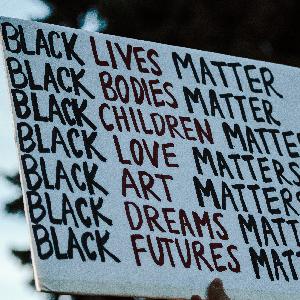 BLACK LIVES MATTER
BLACK BODIES MATTER
BLACK CHILDREN MATTE
BLACK LOVE MATTERS
BLACK ART MATTERS
BLACK DREAMS MATT
BLACK FUTURES MAT